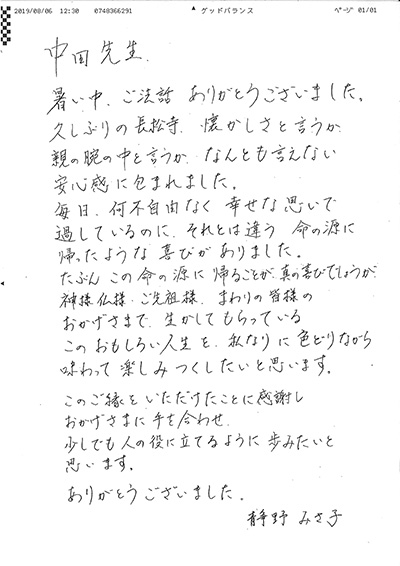 2019/08/06 12:30 0748366291 グッドバランス ページ 01/01
中田先生
暑い中、ご法話 ありがとうございました。
久しぶりの長松寺、懐かしさと言うか
親の腕の中と言うか なんとも言えない
安心感に包まれました。
毎日、何不自由なく 幸せな思いで
過しているのに、それとは違う 命の源に
帰ったような 喜びがありました。
たぶん この命の源に 帰ることが、真の喜びでしょうか
神様 仏様・ご先祖様、まわりの皆様の
おかげさまで、生かしてもらっている
このおもしろい人生を、私なりに 色どりながら
味わって 楽しみつくしたいと思います。
このご縁をいただけたことに感謝し
おかげさまに手を合わせ
少しでも人の役に立てるように 歩みたいと
思います。
ありがとうございました。
静野 みさ子